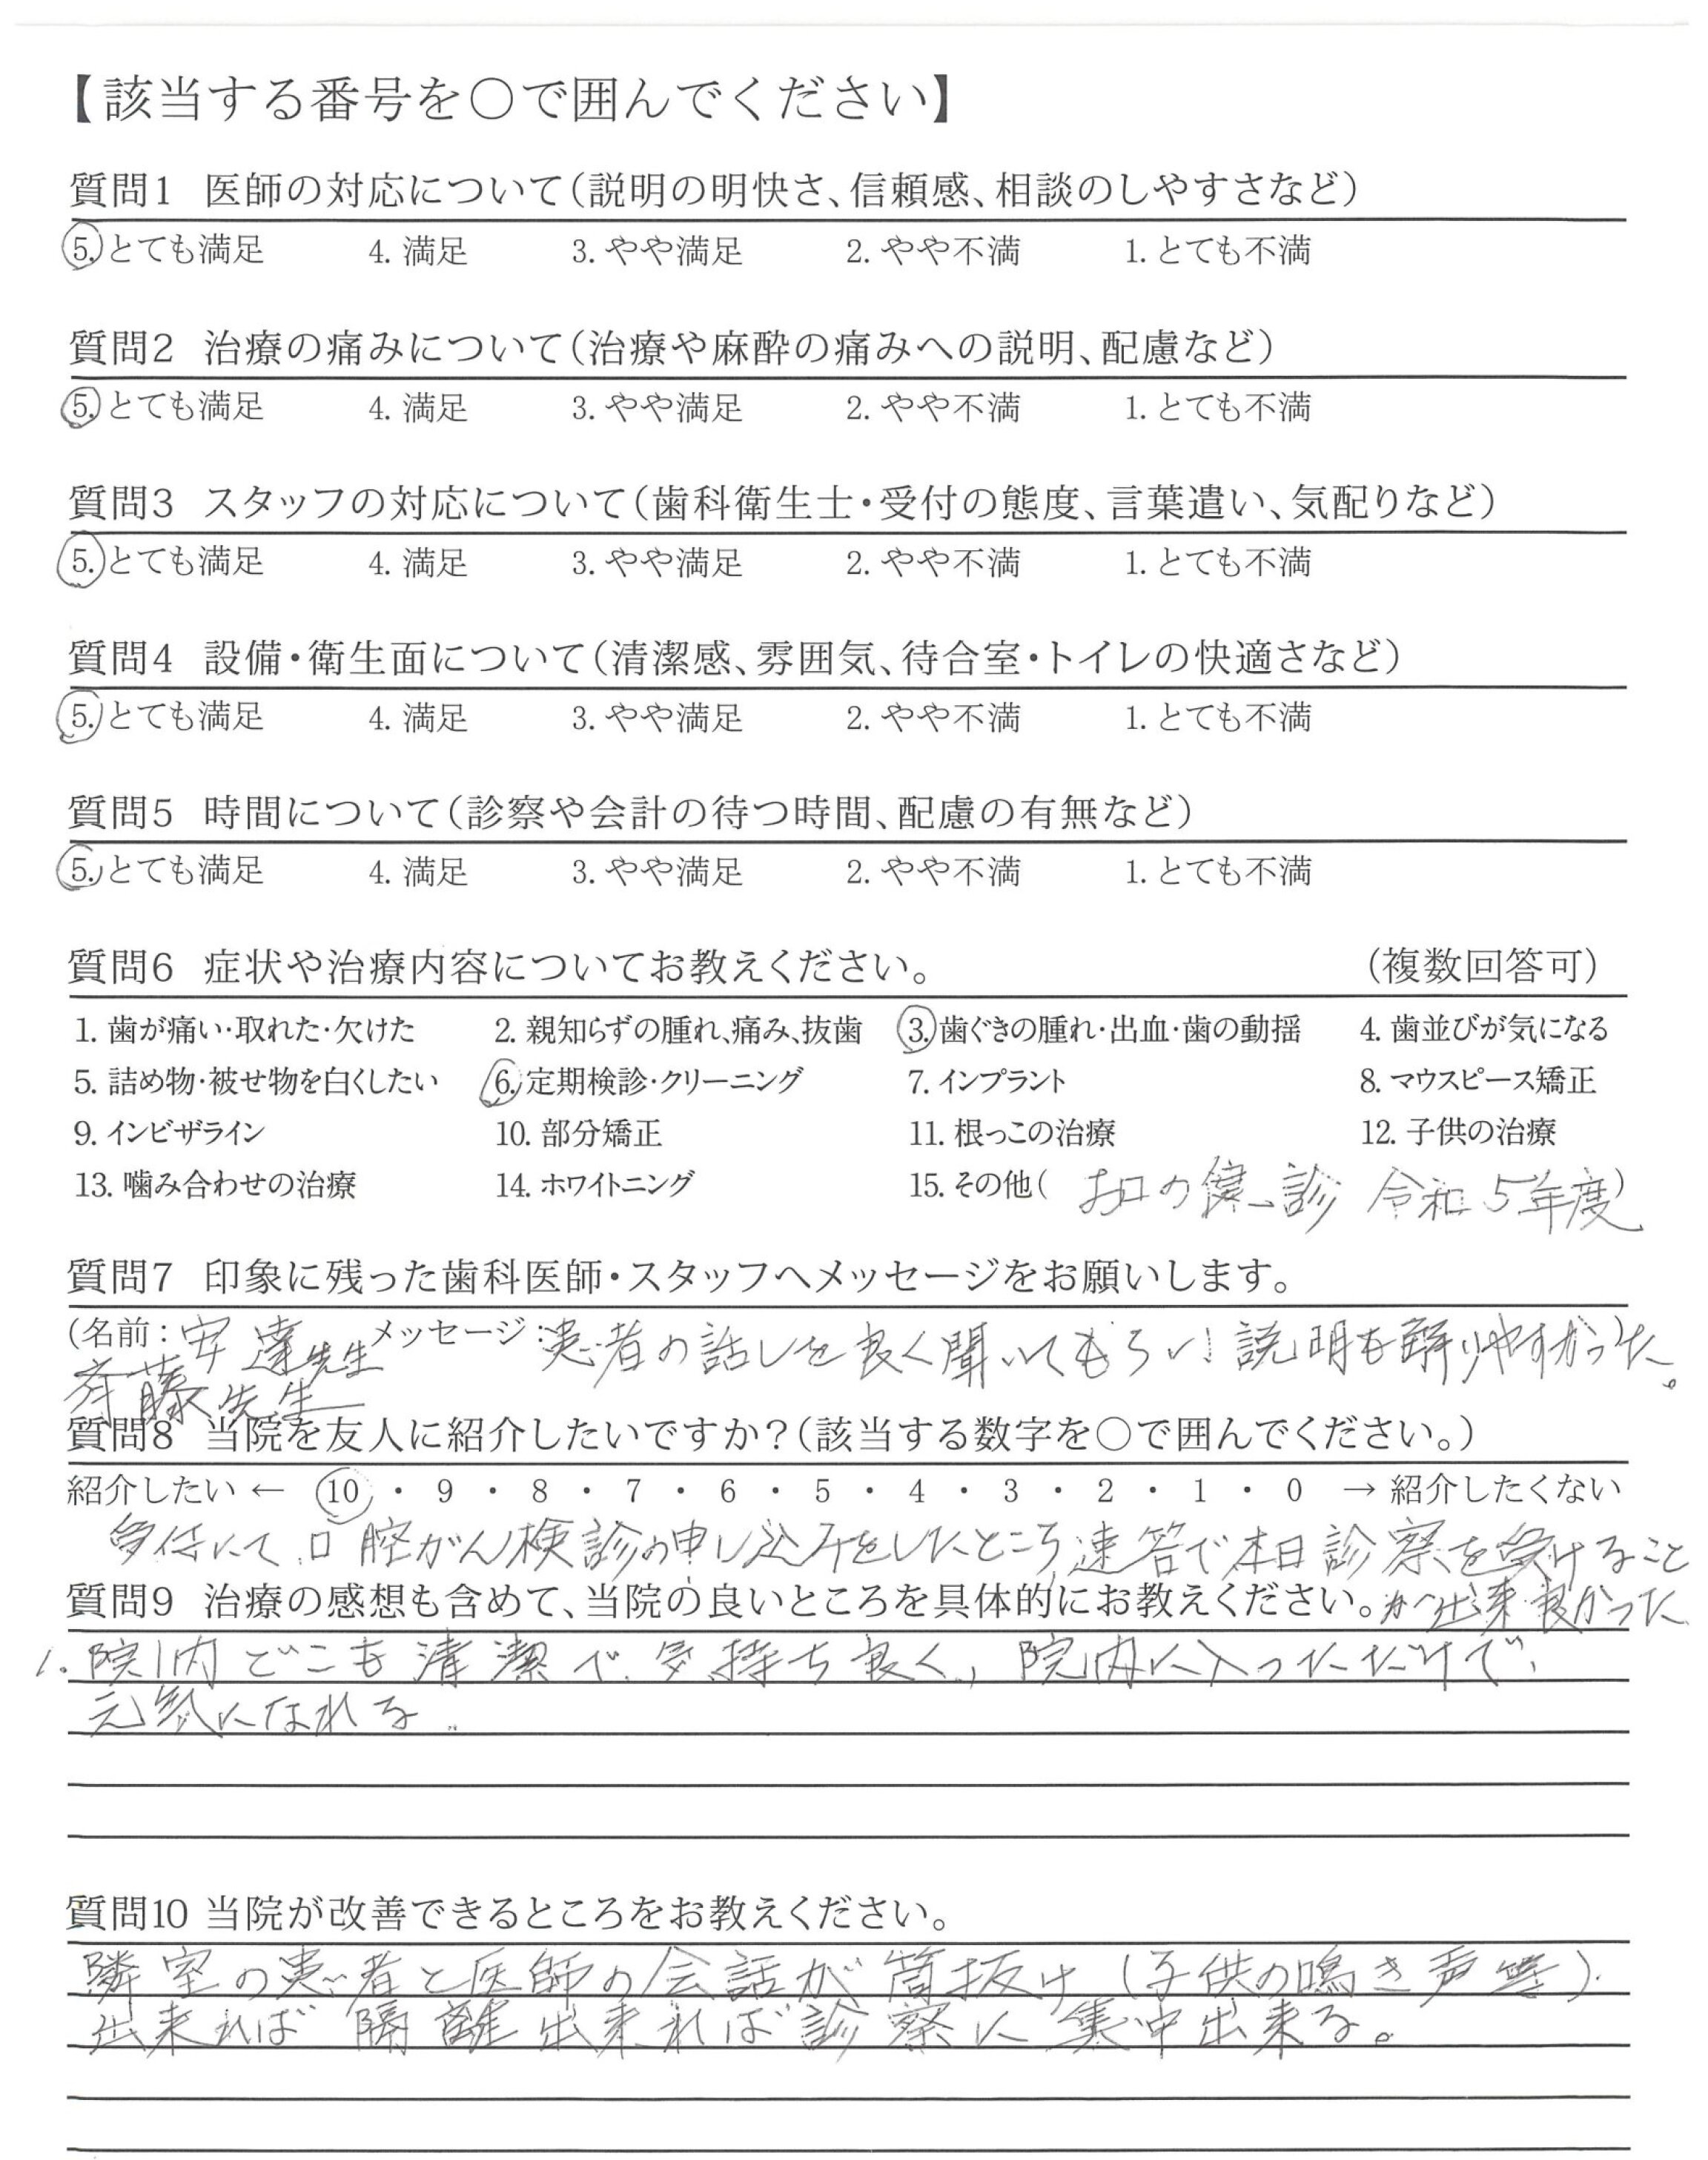 【該当する番号を○で囲んでください】
質問1 医師の対応について(説明の明快さ、信頼感、相談のしやすさなど)
5. とても満足 4. 満足 3. やや満足 2. やや不満 1. とても不満
質問2 治療の痛みについて(治療や麻酔の痛みへの説明、配慮など)
5. とても満足 4. 満足 3. やや満足 2. やや不満 1. とても不満
質問3 スタッフの対応について(歯科衛生士・受付の態度、言葉遣い、気配りなど)
5. とても満足 4. 満足 3. やや満足 2. やや不満 1. とても不満
質問4 設備・衛生面について(清潔感、雰囲気、待合室・トイレの快適さなど)
5. とても満足 4. 満足 3. やや満足 2. やや不満 1. とても不満
質問5 時間について(診察や会計の待つ時間、配慮の有無など)
5. とても満足 4. 満足 3. やや満足 2. やや不満 1. とても不満
質問6 症状や治療内容についてお教えください。 (複数回答可)
1. 歯が痛い・取れた・欠けた 2. 親知らずの腫れ、痛み、抜歯 3. 歯ぐきの腫れ・出血・歯の動揺 4. 歯並びが気になる
5. 詰め物・被せ物を白くしたい 6. 定期検診・クリーニング 7. インプラント 8. マウスピース矯正
9. インビザライン 10. 部分矯正 11. 根っこの治療 12. 子供の治療
13. 噛み合わせの治療 14. ホワイトニング 15. その他( お口の健診 令和5年度)
質問7 印象に残った歯科医師・スタッフへメッセージをお願いします。
(名前: 安達先生 メッセージ: 患者の話しを良く聞いてもらい!説明も解りやすかった。
斉藤先生
質問8 当院を友人に紹介したいですか?(該当する数字を○で囲んでください。)
紹介したい ← 10 ・ 9 ・ 8 ・ 7 ・ 6 ・ 5 ・ 4 ・ 3 ・ 2 ・ 1 ・ 0 → 紹介したくない
受付にて、口腔がん検診の申し込みをしたところ、速答で本日診察を受けること
質問9 治療の感想も含めて、当院の良いところを具体的にお教えください。 が出来良かった
1. 院内どこも清潔で、気持ち良く、院内に入っただけで、
元気になれる。
質問10 当院が改善できるところをお教えください。
隣室の患者と医師の会話が筒抜け(子供の鳴き声等).
出来れば隔離出来れば診察に集中出来る。